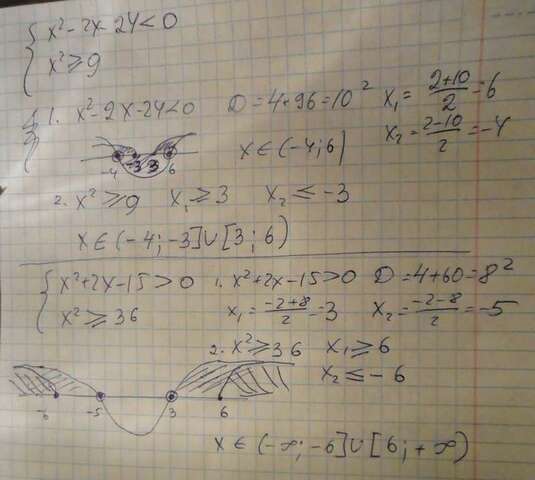 { x² - 2x - 24 < 0
x² ≥ 9
1. x² - 2x - 24 < 0 D = 4 + 96 = 10² x₁ = (2+10)/2 = 6
x₂ = (2-10)/2 = -4
-4 -3 3 6 x ∈ (-4; 6)
2. x² ≥ 9 x₁ ≥ 3 x₂ ≤ -3
x ∈ (-4; -3] ∪ [3; 6)
{ x² + 2x - 15 > 0 1. x² + 2x - 15 > 0 D = 4 + 60 = 8²
x² ≥ 36 x₁ = (-2+8)/2 = 3 x₂ = (-2-8)/2 = -5
2. x² ≥ 36 x₁ ≥ 6
x₂ ≤ -6
-6 -5 3 6
x ∈ (-∞; -6] ∪ [6; +∞)